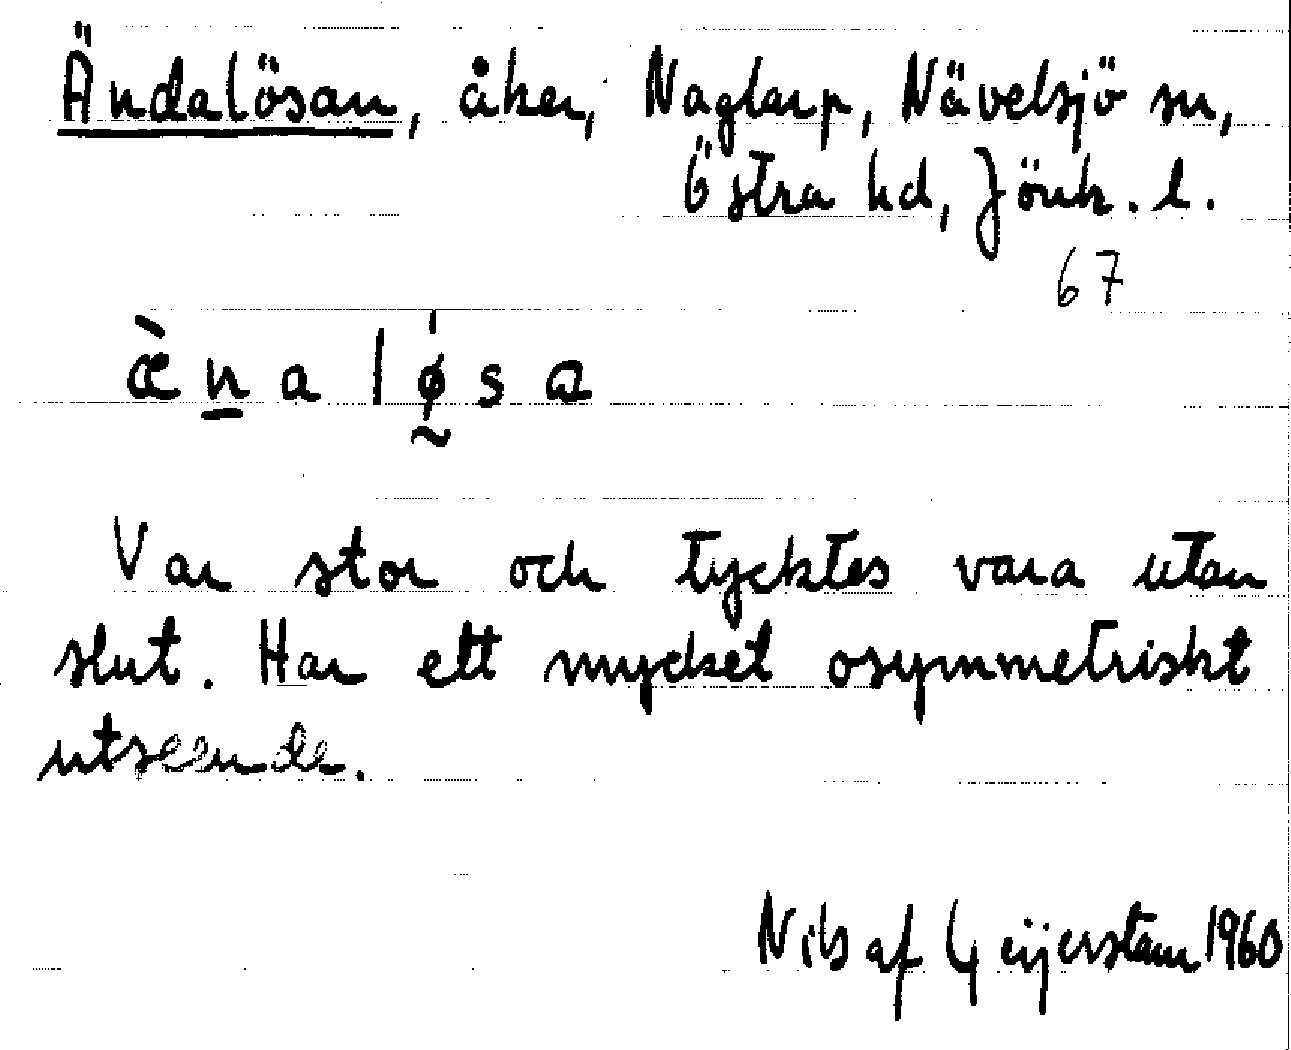 Ändalösan, åker, Naglarp, Nävelsjö sn,
Östra hd, Jönk. l.
67
æ̀n̲alǿ̰sa
Var stor och tycktes vara utan
slut. Har ett mycket osymmetriskt
utseende.
Nils af Geijerstam 1960